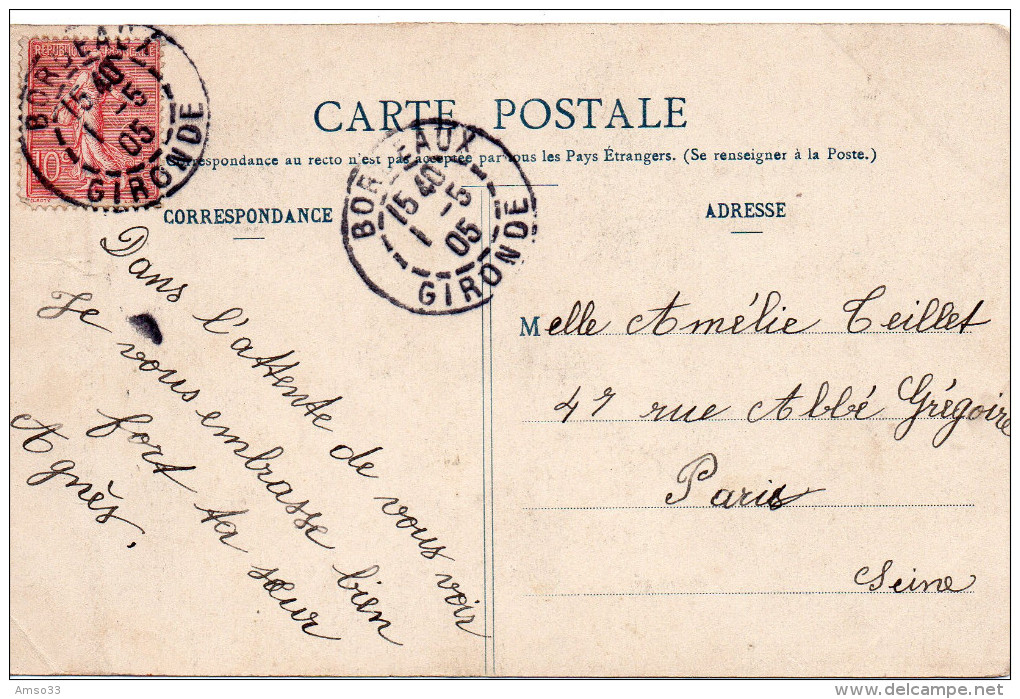 RÉPUBLIQUE FRANÇAISE
10
BORDEAUX
15 40
1 - 5
05
GIRONDE
CARTE POSTALE
Correspondance au recto n'est pas acceptée par tous les Pays Étrangers. (Se renseigner à la Poste.)
BORDEAUX
15 40
1 - 5
05
GIRONDE
CORRESPONDANCE
Dans l'attente de vous voir
Je vous embrasse bien
fort ta sœur
Agnès.
ADRESSE
Melle Amélie Teillet
47 rue Abbé Grégoire
Paris
Seine
Amso33
www.delcampe.net